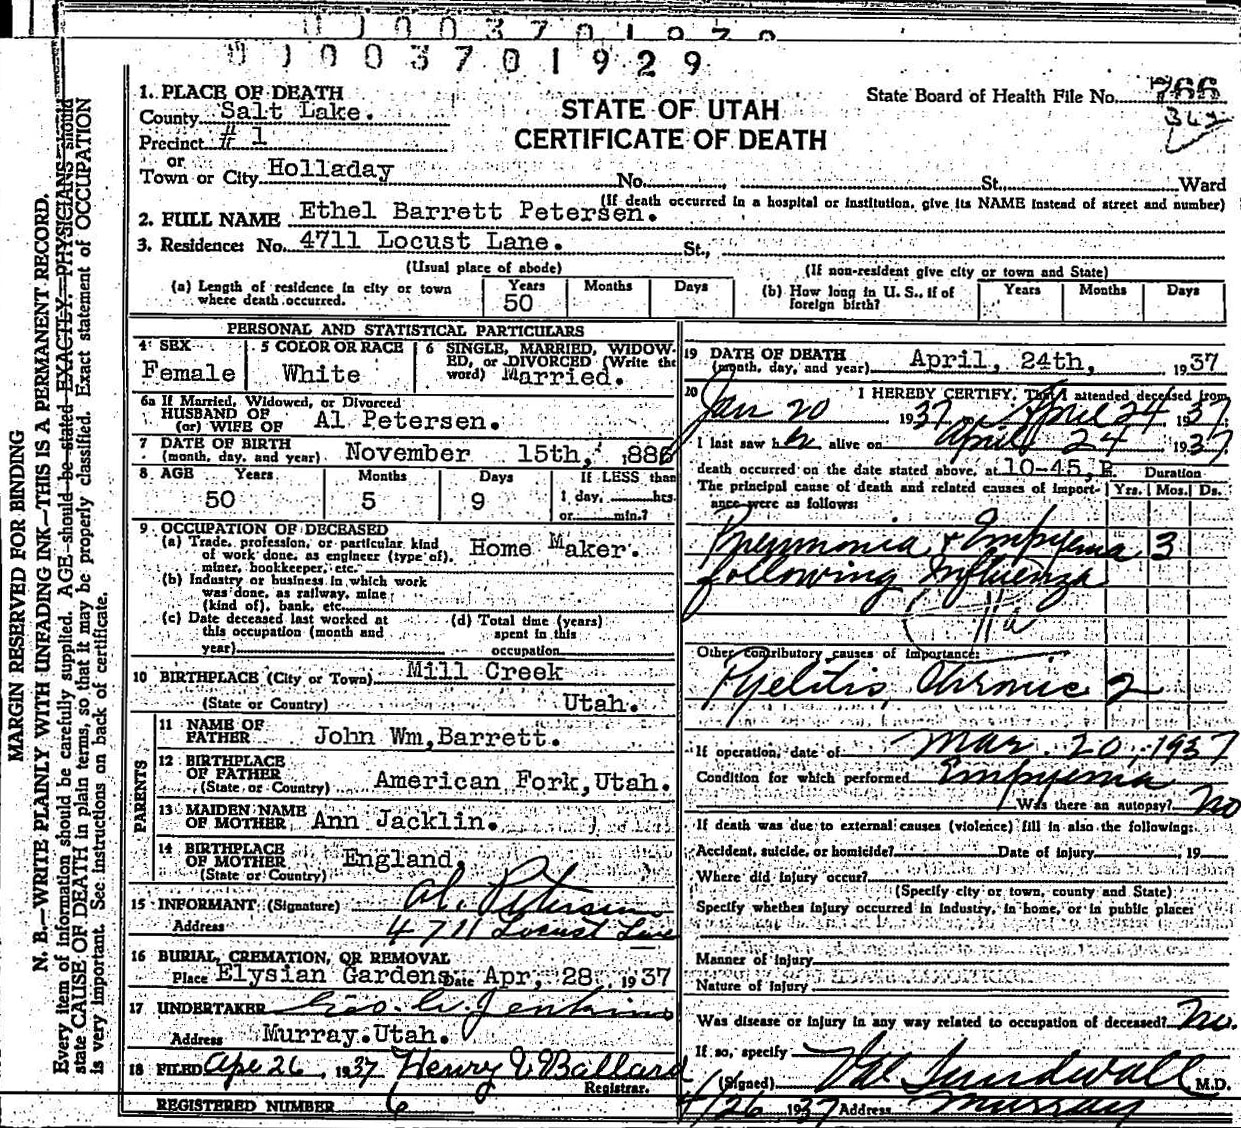 0 1 0 0 3 7 0 1 9 2 9
STATE OF UTAH
CERTIFICATE OF DEATH
State Board of Health File No. 766
1. PLACE OF DEATH
County Salt Lake.
Precinct # 1
or
Town or City Holladay No. St. Ward
(If death occurred in a hospital or institution, give its NAME instead of street and number)
2. FULL NAME Ethel Barrett Petersen.
3. Residence: No. 4711 Locust Lane. St.,
(Usual place of abode) (If non-resident give city or town and State)
(a) Length of residence in city or town where death occurred. Years 50 Months Days
(b) How long in U. S., if of foreign birth? Years Months Days
PERSONAL AND STATISTICAL PARTICULARS
4 SEX Female
5 COLOR OR RACE White
6 SINGLE, MARRIED, WIDOWED, or DIVORCED (Write the word) Married.
6a If Married, Widowed, or Divorced
HUSBAND OF
(or) WIFE OF Al Petersen.
7 DATE OF BIRTH
(month, day, and year) November 15th, 1886
8 AGE Years Months Days If LESS than
50 5 9 1 day, hrs.
or min.?
9 OCCUPATION OF DECEASED
(a) Trade, profession, or particular kind
of work done, as engineer (type of),
miner, bookkeeper, etc. Home Maker.
(b) Industry or business in which work
was done, as railway, mine
(kind of), bank, etc.
(c) Date deceased last worked at
this occupation (month and
year)
(d) Total time (years)
spent in this
occupation
10 BIRTHPLACE (City or Town) Mill Creek
(State or Country) Utah.
PARENTS
11 NAME OF
FATHER John Wm, Barrett.
12 BIRTHPLACE
OF FATHER
(State or Country) American Fork, Utah.
13 MAIDEN NAME
OF MOTHER Ann Jacklin.
14 BIRTHPLACE
OF MOTHER
(State or Country) England,
15 INFORMANT (Signature) Al. Petersen
Address 4711 Locust Lane
16 BURIAL, CREMATION, OR REMOVAL
Place Elysian Gardens Date Apr, 28, 1937
17 UNDERTAKER Geo. W. Jenkins
Address Murray. Utah.
18 FILED Apr 26, 1937 Henry V Ballard
Registrar.
REGISTERED NUMBER 6
19 DATE OF DEATH
(month, day, and year) April, 24th, 1937
20 I HEREBY CERTIFY, That I attended deceased from
Jan 20 1937 April 24 1937
I last saw her alive on April 24 1937
death occurred on the date stated above, at 10-45, P. Duration
The principal cause of death and related causes of importance were as follows: Yrs. Mos. Ds.
Pneumonia & Empyema 3
following Influenza
11a
Other contributory causes of importance:
Pyelitis, Chronic 2
If operation, date of Mar. 20, 1937
Condition for which performed Empyema
Was there an autopsy? No
If death was due to external causes (violence) fill in also the following:
Accident, suicide, or homicide? Date of injury 19
Where did injury occur?
(Specify city or town, county and State)
Specify whether injury occurred in industry, in home, or in public place:
Manner of injury
Nature of injury
Was disease or injury in any way related to occupation of deceased? No.
If so, specify
(Signed) Sundwall M.D.
4/26 1937 Address Murray
MARGIN RESERVED FOR BINDING
N. B.—WRITE PLAINLY WITH UNFADING INK—THIS IS A PERMANENT RECORD.
Every item of information should be carefully supplied. AGE should be stated EXACTLY. PHYSICIANS should
state CAUSE OF DEATH in plain terms, so that it may be properly classified. Exact statement of OCCUPATION
is very important. See instructions on back of certificate.